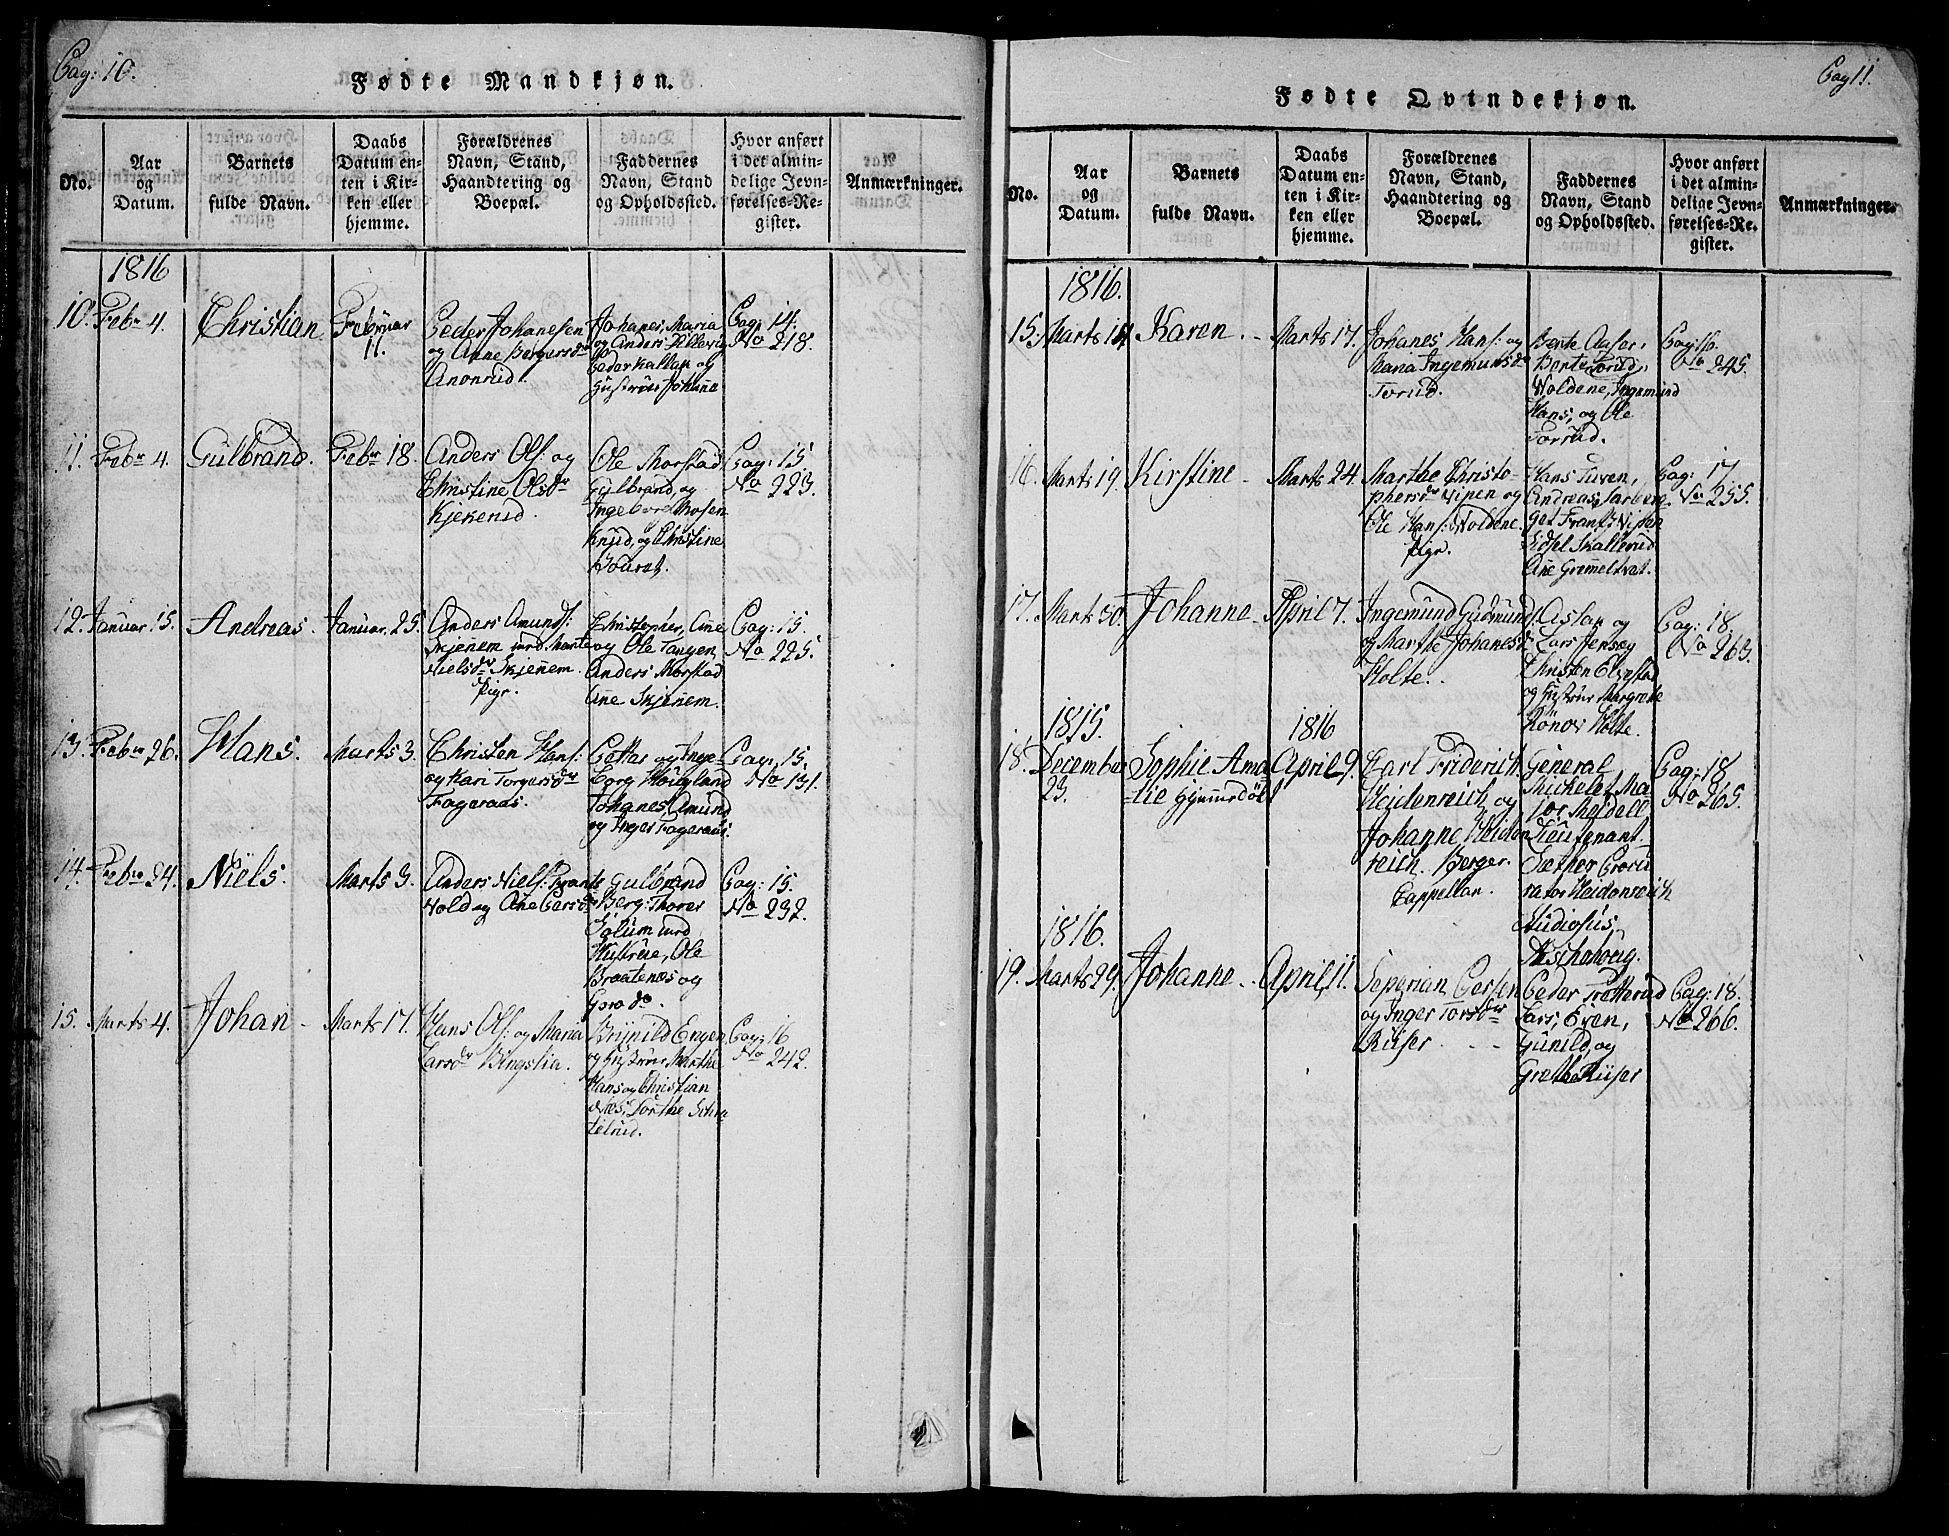 Pag: 10.
Fødte Mandkjøn.
No.
Aar
og
Datum.
Barnets
fulde Navn.
Daabs
Datum en-
ten i Kir-
ken eller
hjemme.
Forældrenes
Navn, Stand,
Haandtering og
Boepæl.
Faddernes
Navn, Stand
og Opholdssted.
Hvor anført
i det almin-
delige Jevn-
førelses-Re-
gister.
Anmærkninger.
1816
10. Febr 4.
Christian
Februar
11.
Peder Johanesen
og Anne Bergersdr
Johanes, Maria
og Anders
Peder Kallak og
Hustrue Johanne
Pag: 14.
No 218.
11. Febr 4.
Gulbrand.
Febr 18.
Anders Ols: og
Christine Olsdr
Kjekerud.
Ole Morstad
Gulbrand, og
Ingebord Rosen
Knud, og Christine
Pag: 15
No 223.
12. Januar. 15.
Andreas.
Januar. 25.
Anders Amunds:
Skjenem med Marte
Nielsdr Skjenem.
Pige.
Christopher, Ane
og Ole Tangen
Anders Morstad
Ane Skjenem.
Pag: 15.
No 225.
13. Febr 26.
Hans.
Marts 3.
Christen Hans:
og Kari Torgersdr
Fageraas.
og Inge-
borg Hougland
Johanes, Amund
og Inger Fageraas.
Pag: 15.
No 131.
14. Febr 24.
Niels.
Marts 3.
Anders Niels: Brante
Vold og Ane Larsdr
Gulbrand
Berg: Thorer
Solum med
Hustrue, Ole
Braatenæs og
Goro do.
Pag: 15.
No 232.
15. Marts 4.
Johan
Marts 17.
Hans Ols: og Maria
Larsdr Bingslia.
Brynild Engen
og Hustrue Marthe
Hans og Christian
Næs, Dorthe
telrud.
Pag: 16
No 242.
Pag 11.
Fødte Qvindekjøn.
No.
Aar
og
Datum.
Barnets
fulde Navn.
Daabs
Datum en-
ten i Kir-
ken eller
hjemme.
Forældrenes
Navn, Stand,
Haandtering og
Boepæl.
Faddernes
Navn, Stand
og Opholdssted.
Hvor anført
i det almin-
delige Jevn-
førelses-Re-
gister.
Anmærkninger.
1816.
15. Marts 14.
Karen.
Marts 17.
Johanes Hans: og
Maria Ingemunsdr
Torud.
Berte Torud,
Woldene, Ingemund
Hans, og Ole
Torud.
Pag: 16.
No 245.
16. Marts 19.
Kirstine
Marts 24.
Marthe Christo-
phersdr Vipen og
Ole Hans: Woldene.
Pige.
Hans Tuven,
Andreas
Eidsel Skallerud
Ane Gremeltvæt.
Pag: 17.
No 255.
17. Marts 30.
Johanne
April 7.
Ingemund Gudmund
og Marthe Johanesdr
Holte.
Aslak og
Lars Jenseg
Christen Elgestad
og Hustrue Margrethe
Rönov Holte.
Pag: 18
No 263.
1815.
1816
18. December
23.
Sophie Ama-
lie Gjemedöbt
April 9.
Carl Friderich
Heidenreich og
Johanne Heiden
reich. Berger.
Cappellan.
General
Michelet Ma-
jor Meidell
Lieutenant
Sæther Procu
rator Heidenreich
Studiosus
Aschehoug.
Pag: 18
No 265.
1816.
19. Marts 29.
Johanne
April 11.
Seperian Persen
og Inger Torsdr
Ruser
Peder Trötterud
Lars, Even,
Gunild, og
Grethe Ruser
Pag: 18.
No 266.